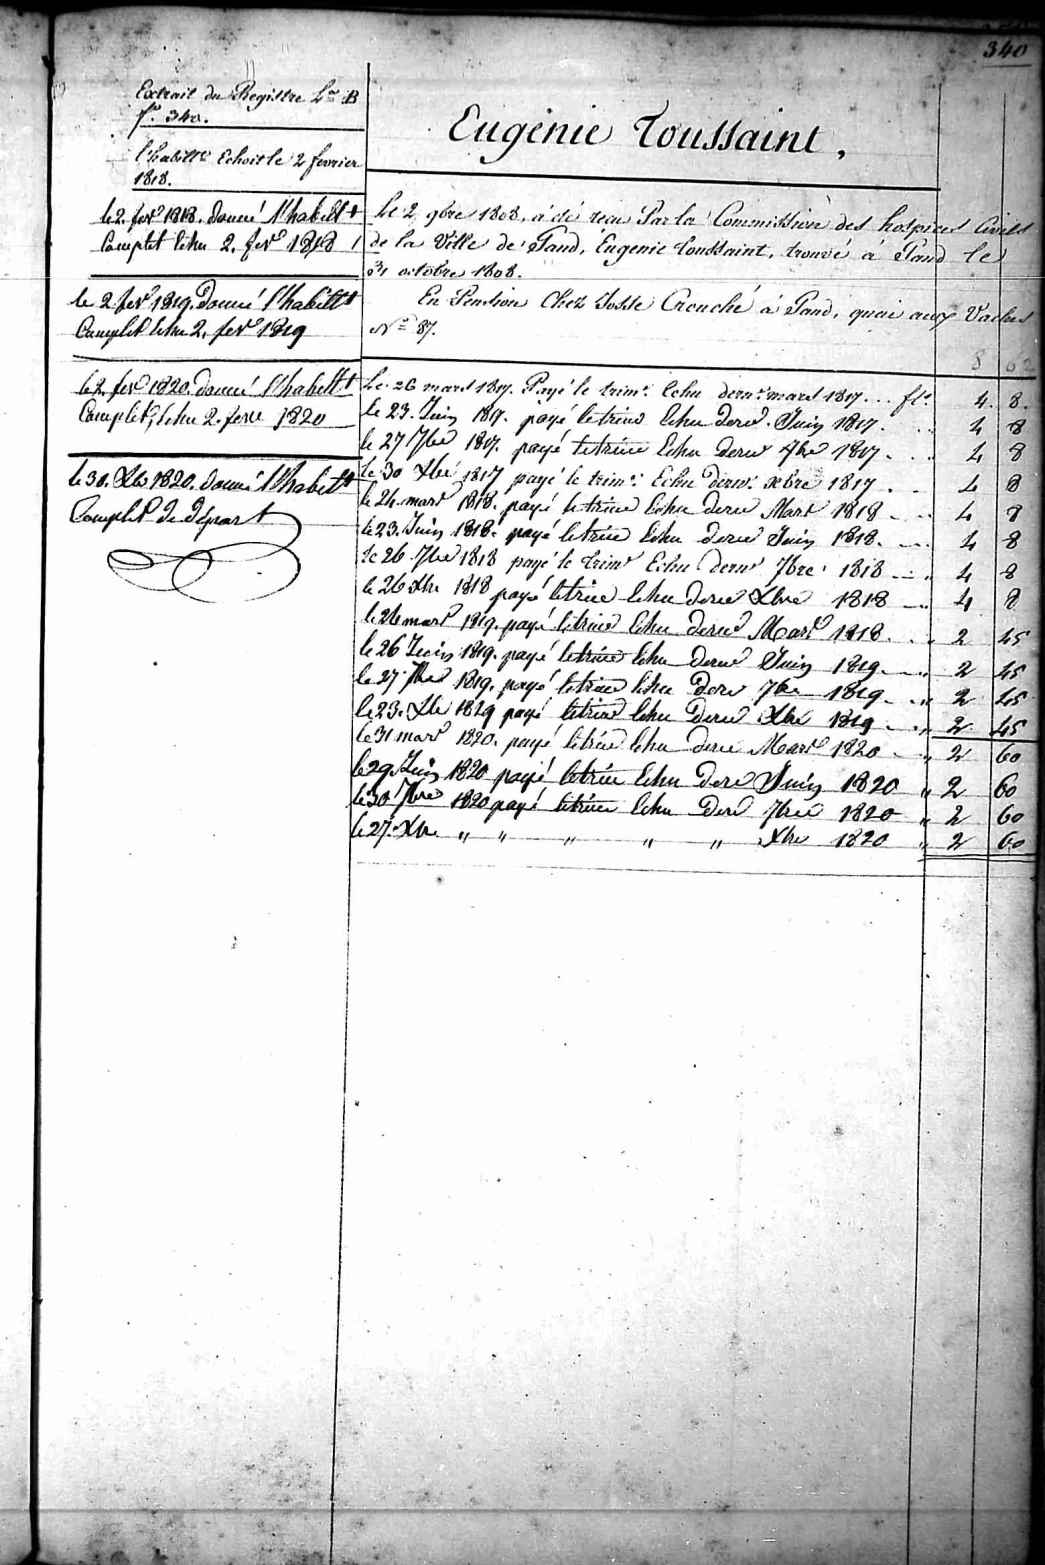 340
Extrait du Registre L.re B
f.o 340.
l'habillt Echoit le 2 fevrier
1818.
le 2. fevr 1818. donné l'habillt
Complet Echu 2. fevr 1818
le 2 fevr 1819. Donné l'habillt
Complet Echu 2. fevr 1819
le 2. fevr 1820. donné l'habillt
Complet, Echu 2. fevr 1820
le 30. Xbre 1820. donné l'habillt
Complet de départ
Eugénie Toussaint.
Le 2 9bre 1808, a été reçu Par la Commission des hospices Civils
de la Ville de Gand, Eugenie Toussaint, trouvé à Gand le
31 octobre 1808.
En Pension Chez Josse Crouché à Gand, quai aux Vaches
No 87.
8 62
Le 26 mars 1817. Payé le trimr Echu dernr mars 1817... fls. 4. 8.
Le 23. Juin 1817. payé le trime Echu derne Juin 1817. .. 4 8
le 27 7bre 1817. payé le trime Echu derne 7bre 1817. .. 4 8
Le 30 Xbre 1817 payé le trimr. Echu dernr. xbre 1817. .. 4 8
le 24. mars 1818. payé le trime Echu derne Mars 1818 .. 4 8
le 23. Juin 1818. payé le trime Echu derne Juin 1818. .. 4 8
Le 26 7bre 1818 payé le trimr Echu dernr 7bre 1818 .. 4 8
le 26 Xbre 1818 payé le trime Echu derne Xbre 1818 .. 4 8
le 26 mars 1819. payé le trime Echu derne Mars 1818. .. 2 45
le 26 Juin 1819. payé le trime Echu derne Juin 1819. .. 2 45
le 27 7bre 1819. payé le trime Echu derne 7bre 1819 .. 2 45
le 23. Xbre 1819 payé le trime Echu derne Xbre 1819 .. 2 45
le 31 mars 1820. payé le trime Echu derne Mars 1820 " 2 60
le 29. Juin 1820 payé le trime Echu derne Juin 1820 " 2 60
le 30 7bre 1820 payé le trime Echu derne 7bre 1820 " 2 60
le 27. Xbre " " " " " Xbre 1820 " 2 60